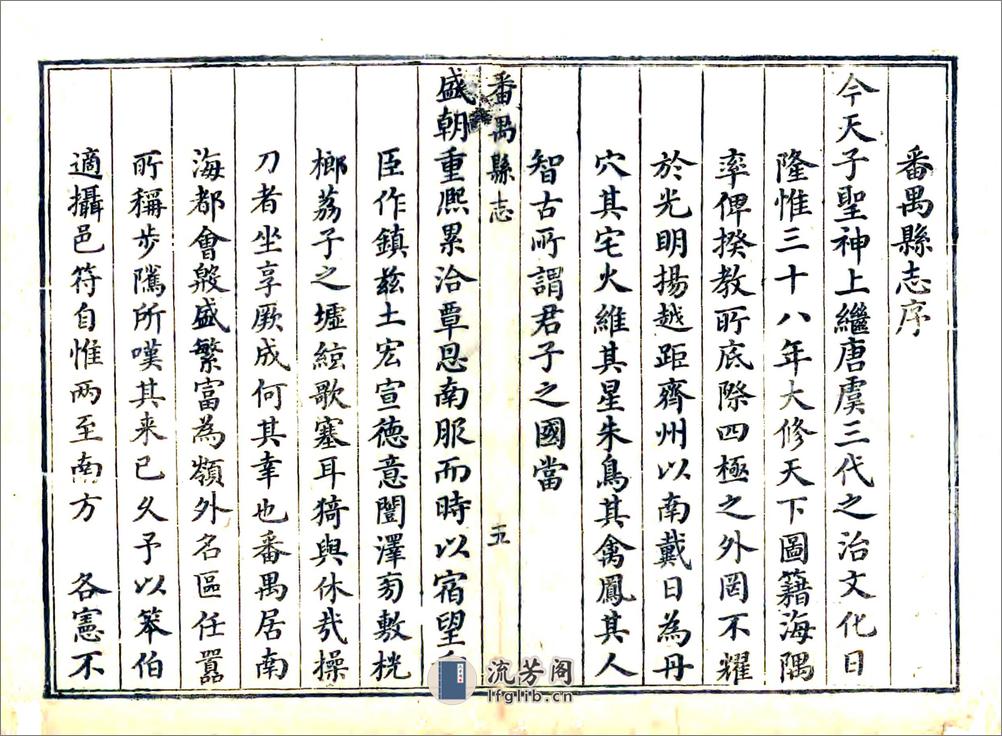 番禺縣志序
今天子聖神上繼唐虞三代之治文化日
隆惟三十八年大修天下圖籍海隅
率俾揆教所底際四極之外罔不耀
於光明揚越距齊州以南戴日為丹
穴其宅火維其星朱鳥其禽鳳其人
智古所謂君子之國當
番禺縣志
五
盛朝重熙累洽覃恩南服而時以宿望
臣作鎮兹土宏宣德意闓澤旁敷桄
榔荔子之墟絃歌塞耳猗與休哉操
刀者坐享厥成何其幸也番禺居南
海都會殷盛繁富為嶺外名區任囂
所稱步騭所嘆其来已久予以笨伯
適攝邑符自惟两至南方 各憲不
流芳阁
lfglib.cn